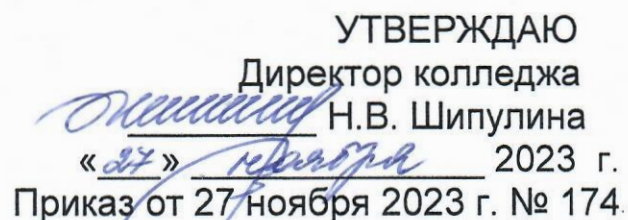 УТВЕРЖДАЮ
Директор колледжа
Н.В. Шипулина
«27» ноября 2023 г.
Приказ от 27 ноября 2023 г. № 174